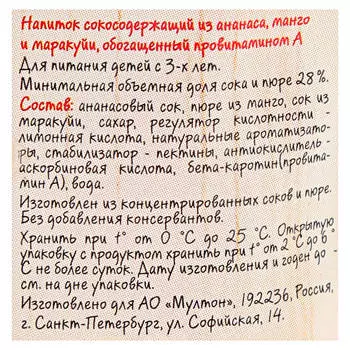 Напиток сокосодержащий из ананаса, манго
и маракуйи, обогащенный провитамином А
Для питания детей с 3-х лет.
Минимальная объемная доля сока и пюре 28%.
Состав: ананасовый сок, пюре из манго, сок из
маракуйи, сахар, регулятор кислотности -
лимонная кислота, натуральные ароматизато-
ры, стабилизатор - пектины, антиокислитель -
аскорбиновая кислота, бета-каротин(провита-
мин А), вода.
Изготовлен из концентрированных соков и пюре.
Без добавления консервантов.
Хранить при t° от 0 °С до 25 °С. Открытую
упаковку с продуктом хранить при t° от 2 °С до 6 °
С не более суток. Дату изготовления и годен до -
см. на дне упаковки.
Изготовлено для АО «Мултон», 192236, Россия,
г. Санкт-Петербург, ул. Софийская, 14.